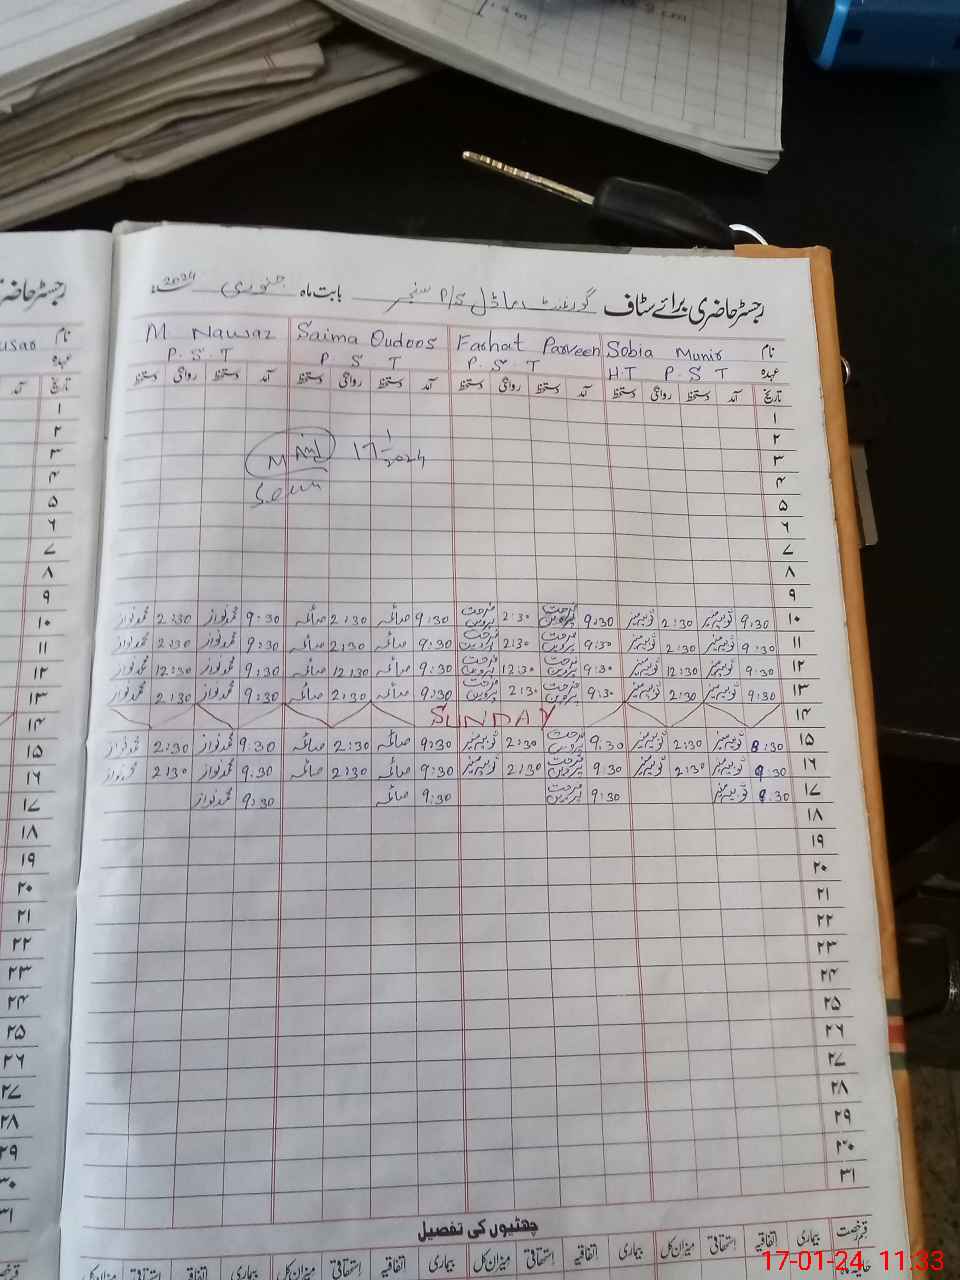 رجسٹر حاضری برائے سٹاف گورنمنٹ ماڈل P/S سنجر بابت ماہ جنوری 2024ء
نام Sobia Munir Farhat Parveen Saima Qudoos M Nawaz
عہدہ HT P.S.T P.S.T P S T P.S.T
تاریخ آمد دستخط روانگی دستخط آمد دستخط روانگی دستخط آمد دستخط روانگی دستخط آمد دستخط روانگی دستخط
۱
۲
۳
17/1/2024
۴
۵
۶
۷
۸
۹
۱۰ 9:30 ثوبیہ منیر 2:30 ثوبیہ منیر 9:30 فرحت پروین 2:30 فرحت پروین 9:30 صائمہ 2:30 صائمہ 9:30 محمد نواز 2:30 محمد نواز
۱۱ 9:30 ثوبیہ منیر 2:30 ثوبیہ منیر 9:30 فرحت پروین 2:30 فرحت پروین 9:30 صائمہ 2:30 صائمہ 9:30 محمد نواز 2:30 محمد نواز
۱۲ 9:30 ثوبیہ منیر 12:30 ثوبیہ منیر 9:30 فرحت پروین 12:30 فرحت پروین 9:30 صائمہ 12:30 صائمہ 9:30 محمد نواز 12:30 محمد نواز
۱۳ 9:30 ثوبیہ منیر 2:30 ثوبیہ منیر 9:30 فرحت پروین 2:30 فرحت پروین 9:30 صائمہ 2:30 صائمہ 9:30 محمد نواز 2:30 محمد نواز
۱۴ SUNDAY
۱۵ 8:30 ثوبیہ منیر 2:30 ثوبیہ منیر 9:30 فرحت پروین 2:30 ثوبیہ منیر 9:30 صائمہ 2:30 صائمہ 9:30 محمد نواز 2:30 محمد نواز
۱۶ 9:30 ثوبیہ منیر 2:30 ثوبیہ منیر 9:30 فرحت پروین 2:30 ثوبیہ منیر 9:30 صائمہ 2:30 صائمہ 9:30 محمد نواز 2:30 محمد نواز
۱۷ 8:30 ثوبیہ منیر 9:30 فرحت پروین 9:30 صائمہ 9:30 محمد نواز
۱۸
۱۹
۲۰
۲۱
۲۲
۲۳
۲۴
۲۵
۲۶
۲۷
۲۸
۲۹
۳۰
۳۱
چھٹیوں کی تفصیل
قسم رخصت بیماری اتفاقیہ استحقاقی میزان کل بیماری اتفاقیہ استحقاقی میزان کل بیماری اتفاقیہ استحقاقی میزان کل بیماری اتفاقیہ استحقاقی میزان کل
17-01-24 11:33